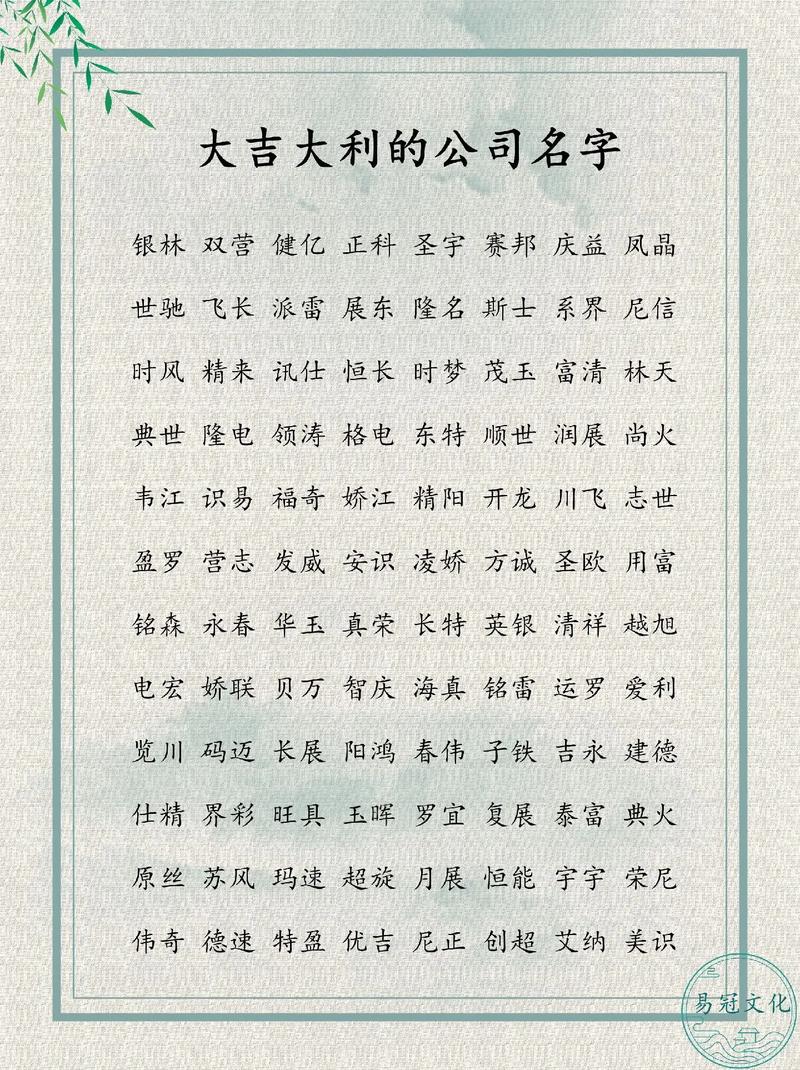 大吉大利的公司名字
银林 双营 健亿 正科 圣宇 赛邦 庆益 凤晶
世驰 飞长 派雷 展东 隆名 斯士 系界 尼信
时风 精来 讯仕 恒长 时梦 茂玉 富清 林天
典世 隆电 领涛 格电 东特 顺世 润展 尚火
韦江 识易 福奇 娇江 精阳 开龙 川飞 志世
盈罗 营志 发威 安识 凌娇 方诚 圣欧 用富
铭森 永春 华玉 真荣 长特 英银 清祥 越旭
电宏 娇联 贝万 智庆 海真 铭雷 运罗 爱利
览川 码迈 长展 阳鸿 春伟 子铁 吉永 建德
仕精 界彩 旺具 玉晖 罗宜 复展 泰富 典火
原丝 苏风 玛速 超旋 月展 恒能 宇宇 荣尼
伟奇 德速 特盈 优吉 尼正 创超 艾纳 美识
易冠文化